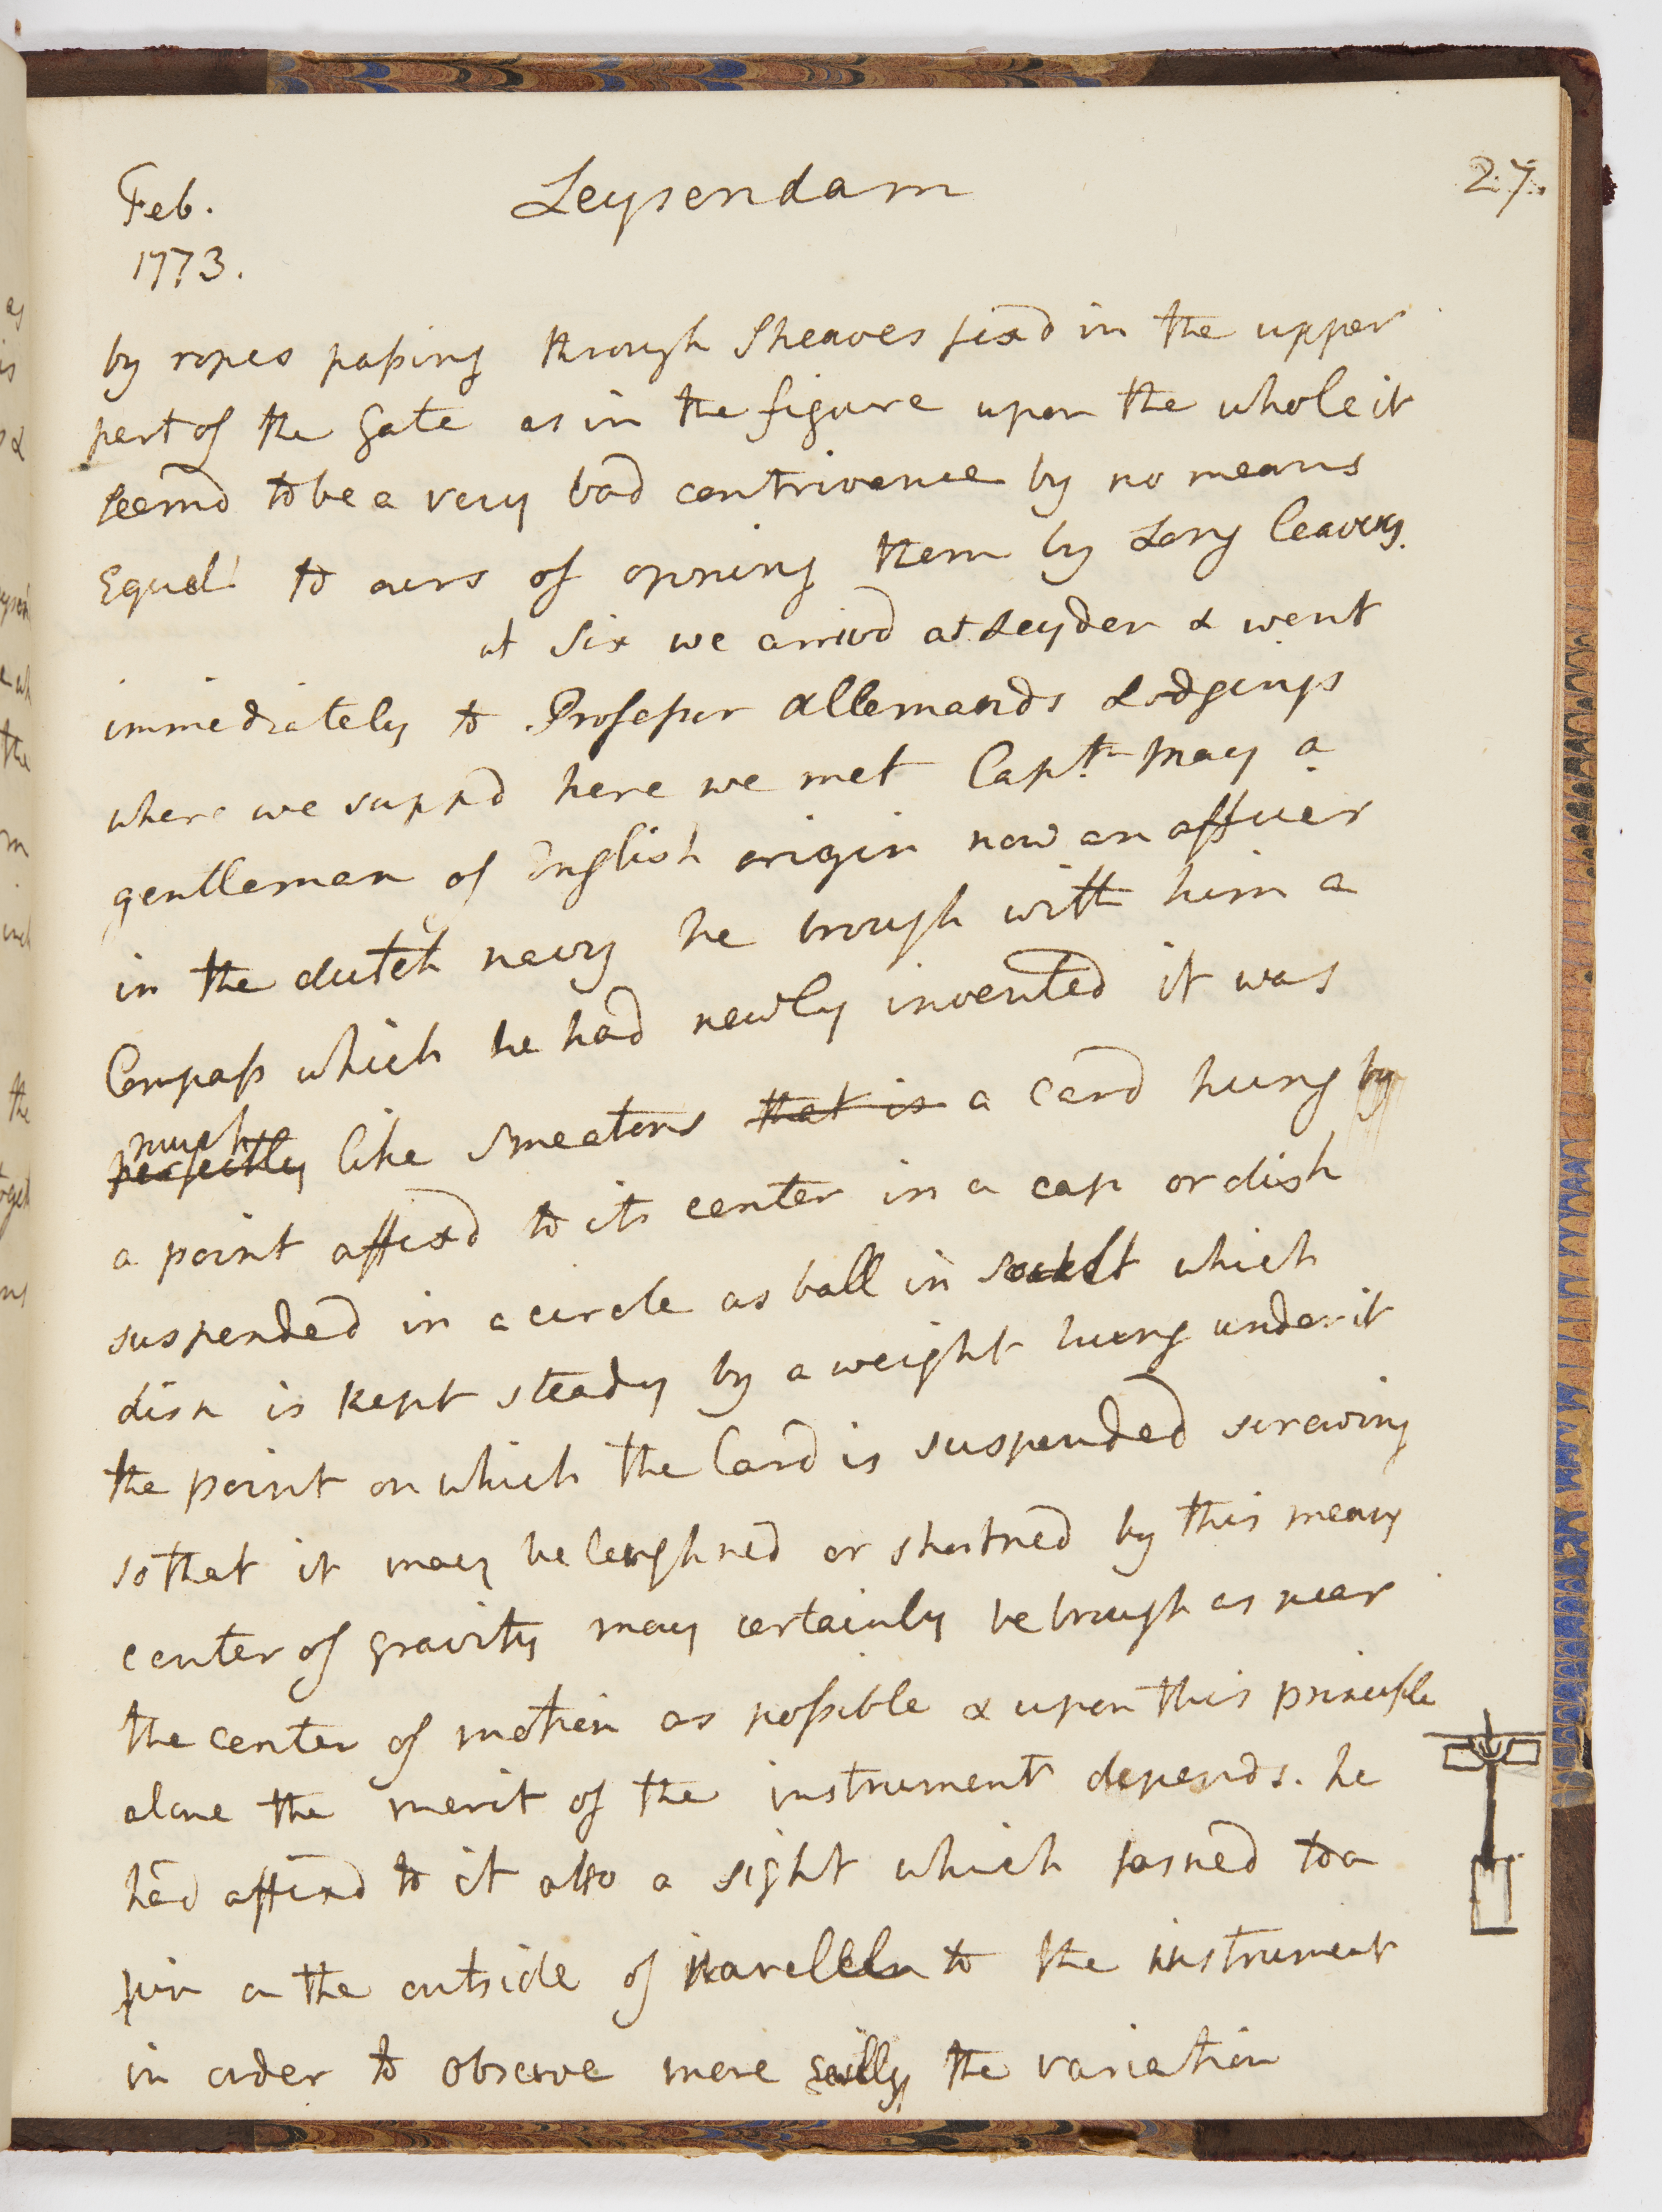 Feb. Leysendam 27.
1773.
by ropes passing through Sheaves fixd in the upper
part of the Gate as in the figure upon the whole it
seemd to be a very bad contrivance by no means
Equal to ours of opning them by Long leavers.
at Six we arrivd at Leyden & went
immediately to Professor Allemands Lodgings
where we suppd here we met Captn May a
gentleman of English origin now an officer
in the dutch navy he brough with him a
Compass which he had newly invented it was
much
perfectly like Smeatons that is a card hung by
a point affixd to its center in a cap or dish
suspended in a circle as ball in socket which
dish is kept steady by a weight hung under it
the point on which the Card is suspended screwing
so that it may be lenghned or shortned by this means
center of gravity may certainly be brough as near
the center of motion as possible & upon this principle
alone the merit of the instrument depends. he
had affixd to it also a sight which to a
pin on the outside of to the instrument
in order to observe more the variation